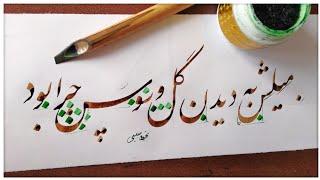 میلش به دیدن گل و سوسن چرا بود